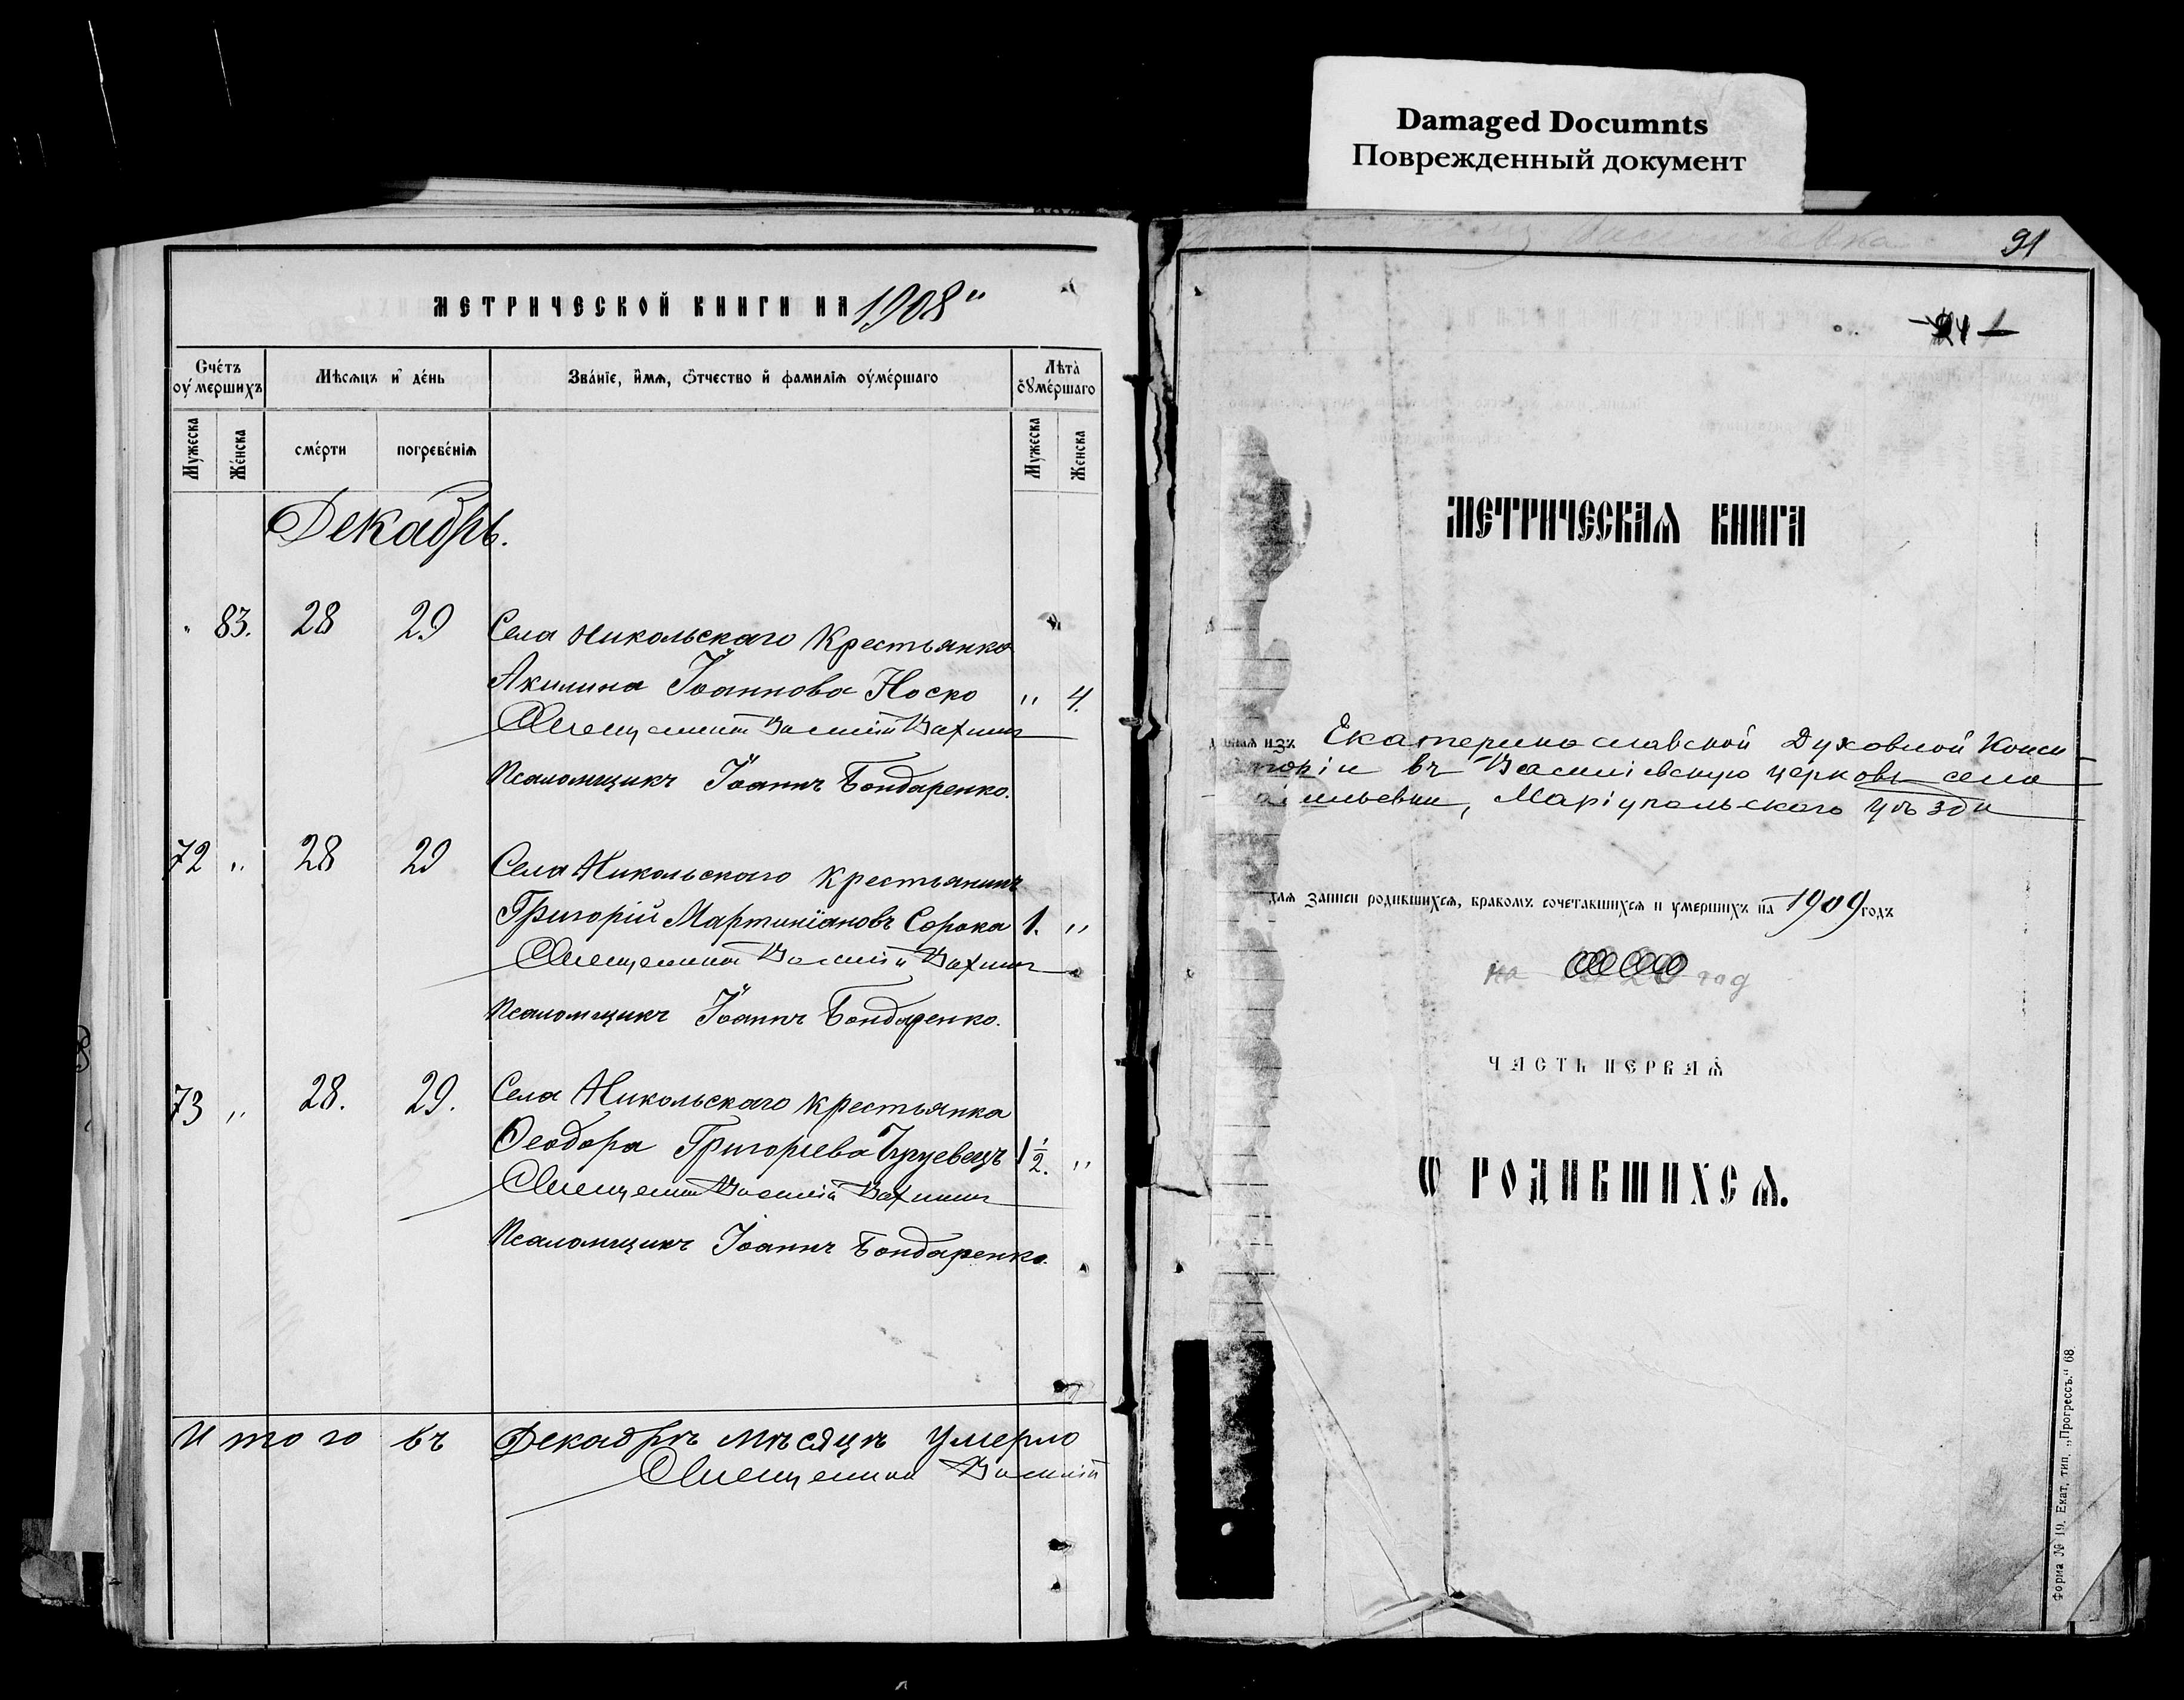 Damaged Documnts
Поврежденный документ
МЕТРИЧЕСКОЙ КНИГИ НА 1908"
Сче́тъ оу́мершихъ
Мѣсѧцъ и де́нь
Зва́нїе, и́мѧ, ѻ́тчество и́ фамилїѧ оуме́ршаго
Лѣта̀ оуме́ршаго
Мужеска
Же́нска
сме́рти
погребе́нїѧ
Мужеска
Женска
Декабрь.
" 83. 28 29 Села Никольскаго Крестьянка
Акилина Іоаннова Носко " 4.
Священникъ Василій
Псаломщикъ Іоаннъ Бондаренко.
72 " 28 29 Села Никольскаго крестьянинъ
Григорій Мартиніановъ Сорока 1. "
Священникъ Василій
Псаломщикъ Іоаннъ Бондаренко.
73 " 28. 29. Села Никольскаго крестьянка
Ѳеодора Григоріева 1½. "
Священникъ Василій
Псаломщикъ Іоаннъ Бондаренко.
Итого въ Декабрѣ мѣсяцѣ умерло
Священникъ Василій
91
МЕТРИЧЕСКАѦ КНИГА
изъ Екатеринославской Духовной Конси-
торіи въ Васильевскую церковь села
ильевки, Маріупольскаго уѣзда
для записи родившихсѧ, бракомъ сочетавшихсѧ и умершихъ на 1909 годъ
на год
ЧАСТЬ ПЕРВАѦ
Ѡ РОДИВШИХСѦ.
Форма № 19. Екат. тип. „Прогрессъ." 68.